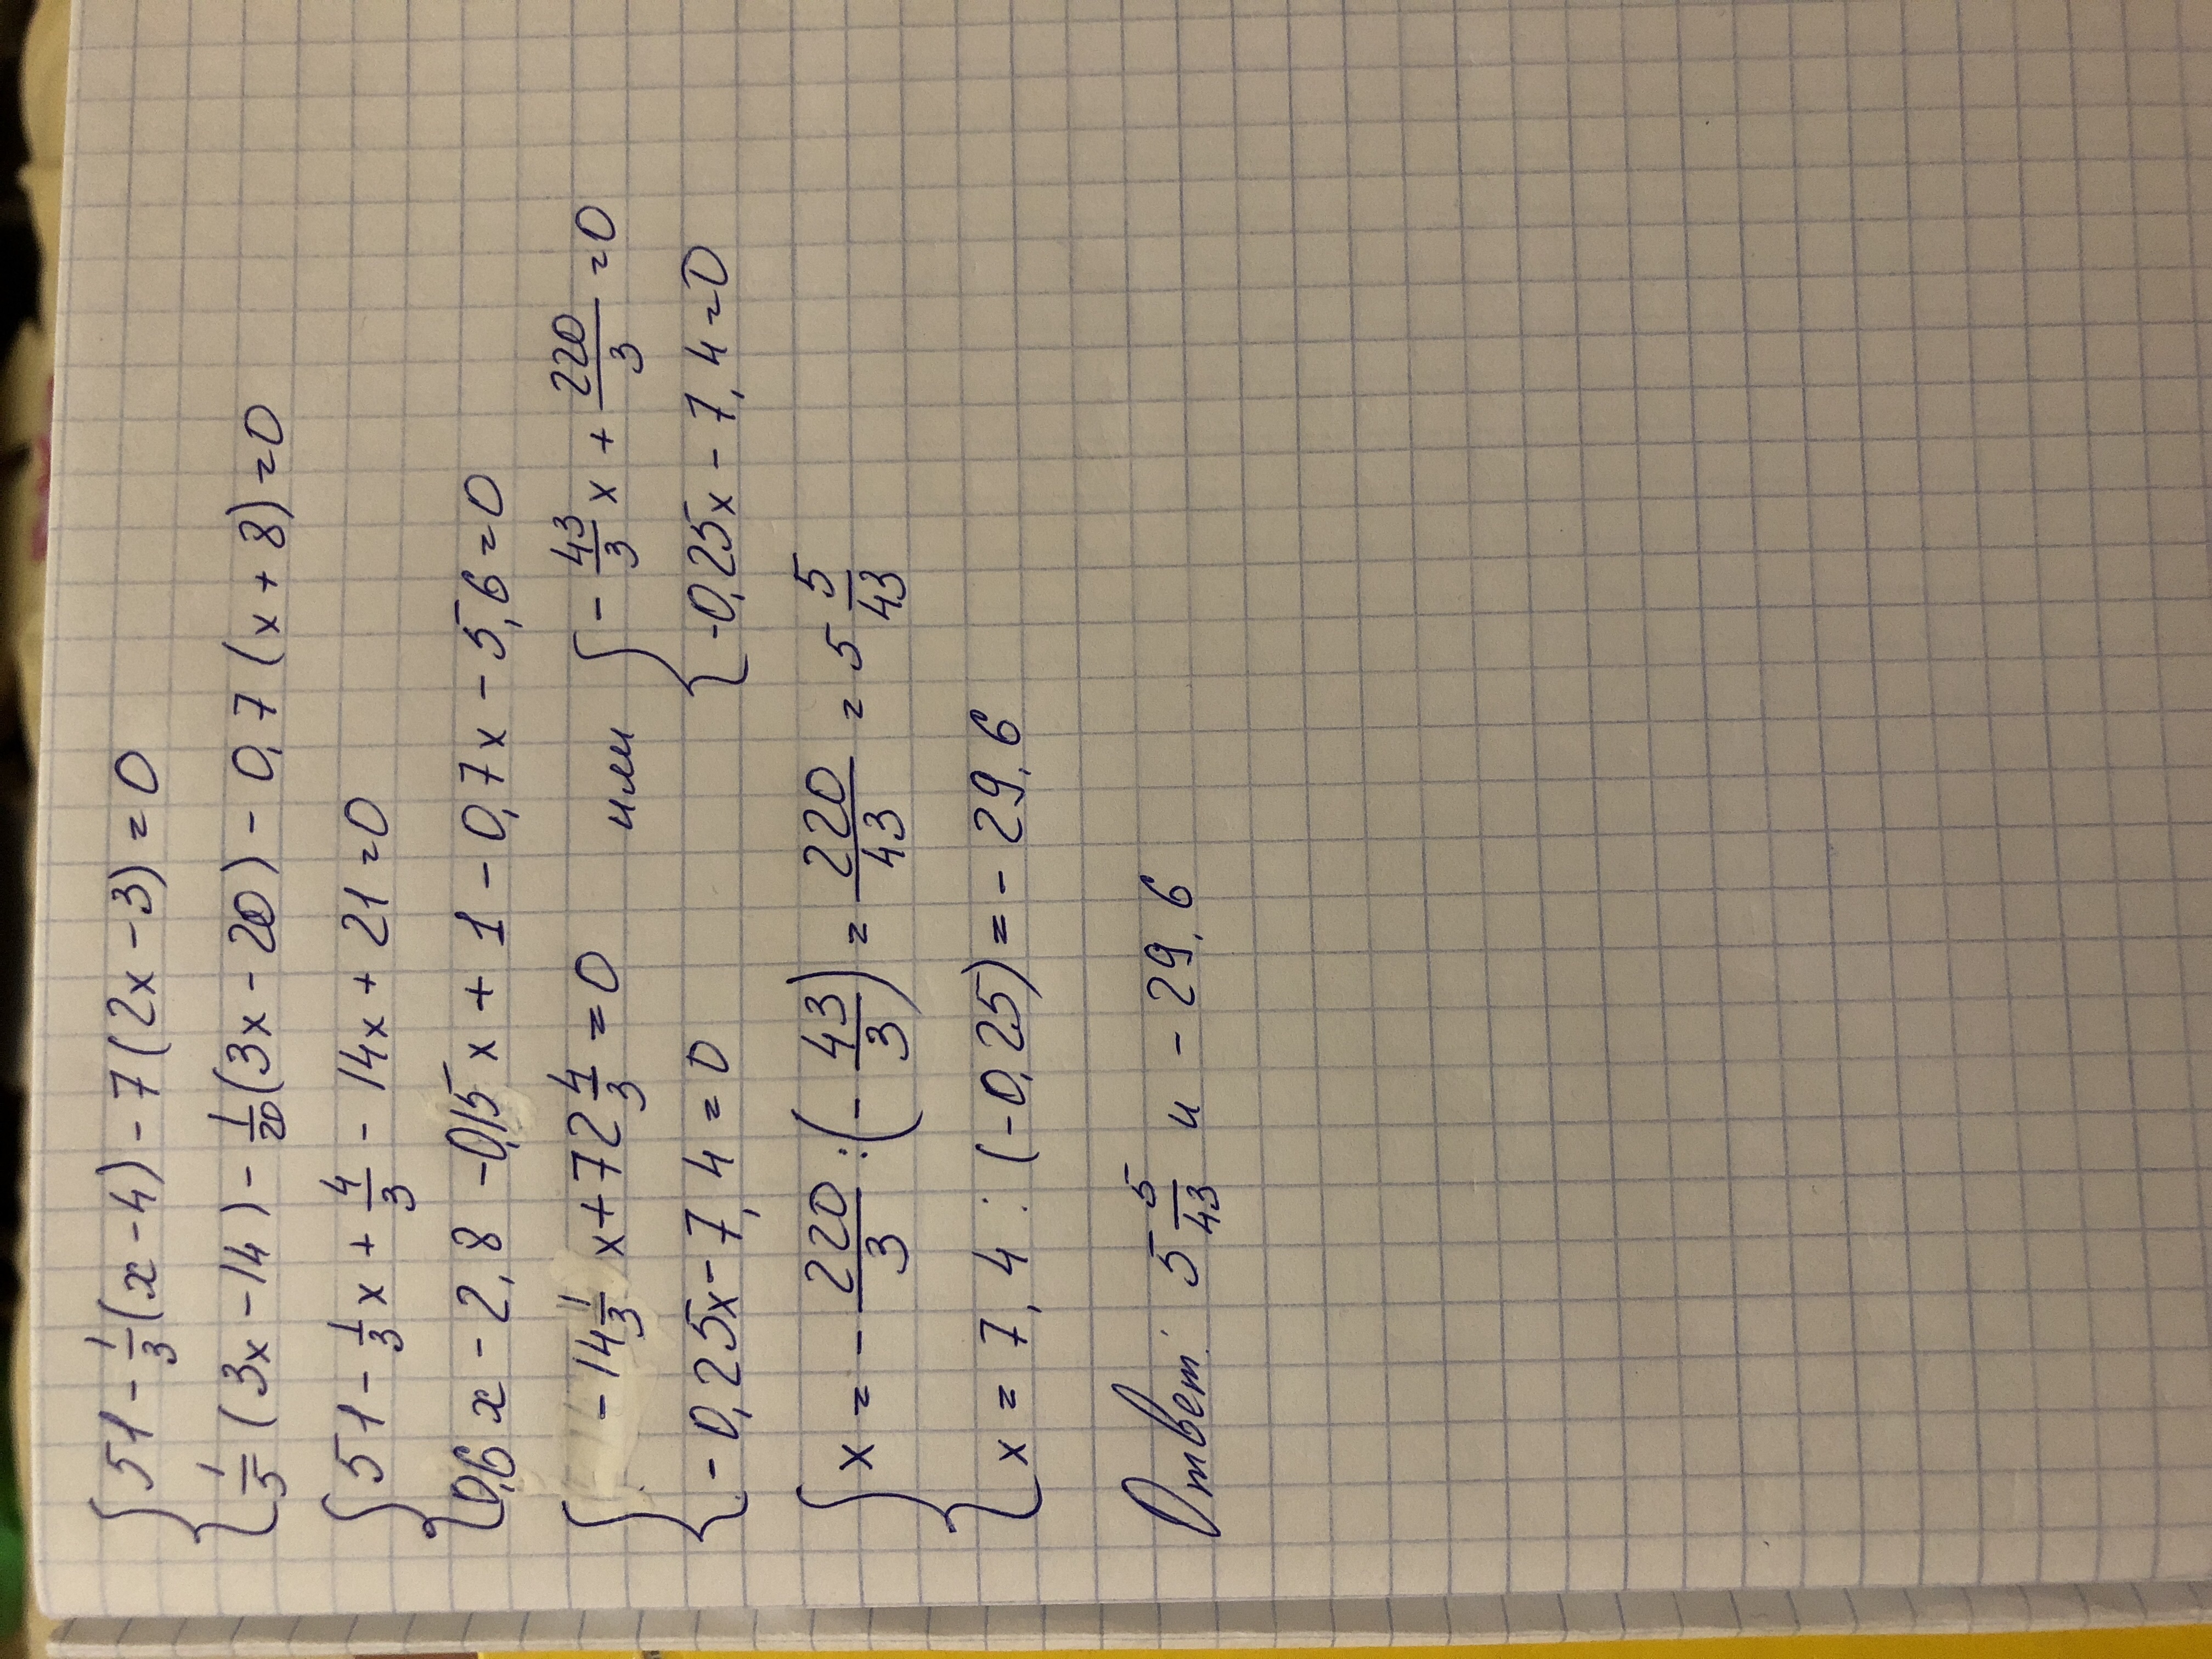 { 51 - 1/3 (x - 4) - 7 (2x - 3) = 0
{ 1/5 (3x - 14) - 1/20 (3x - 20) - 0,7 (x + 8) = 0
{ 51 - 1/3 x + 4/3 - 14x + 21 = 0
{ 0,6x - 2,8 - 0,15x + 1 - 0,7x - 5,6 = 0
{ - 14 1/3 x + 72 4/3 = 0 или { - 43/3 x + 220/3 = 0
{ - 0,25x - 7,4 = 0 { -0,25x - 7,4 = 0
{ x = - 220/3 : (- 43/3) = 220/43 = 5 5/43
{ x = 7,4 : (-0,25) = - 29,6
Ответ: 5 5/43 и - 29,6